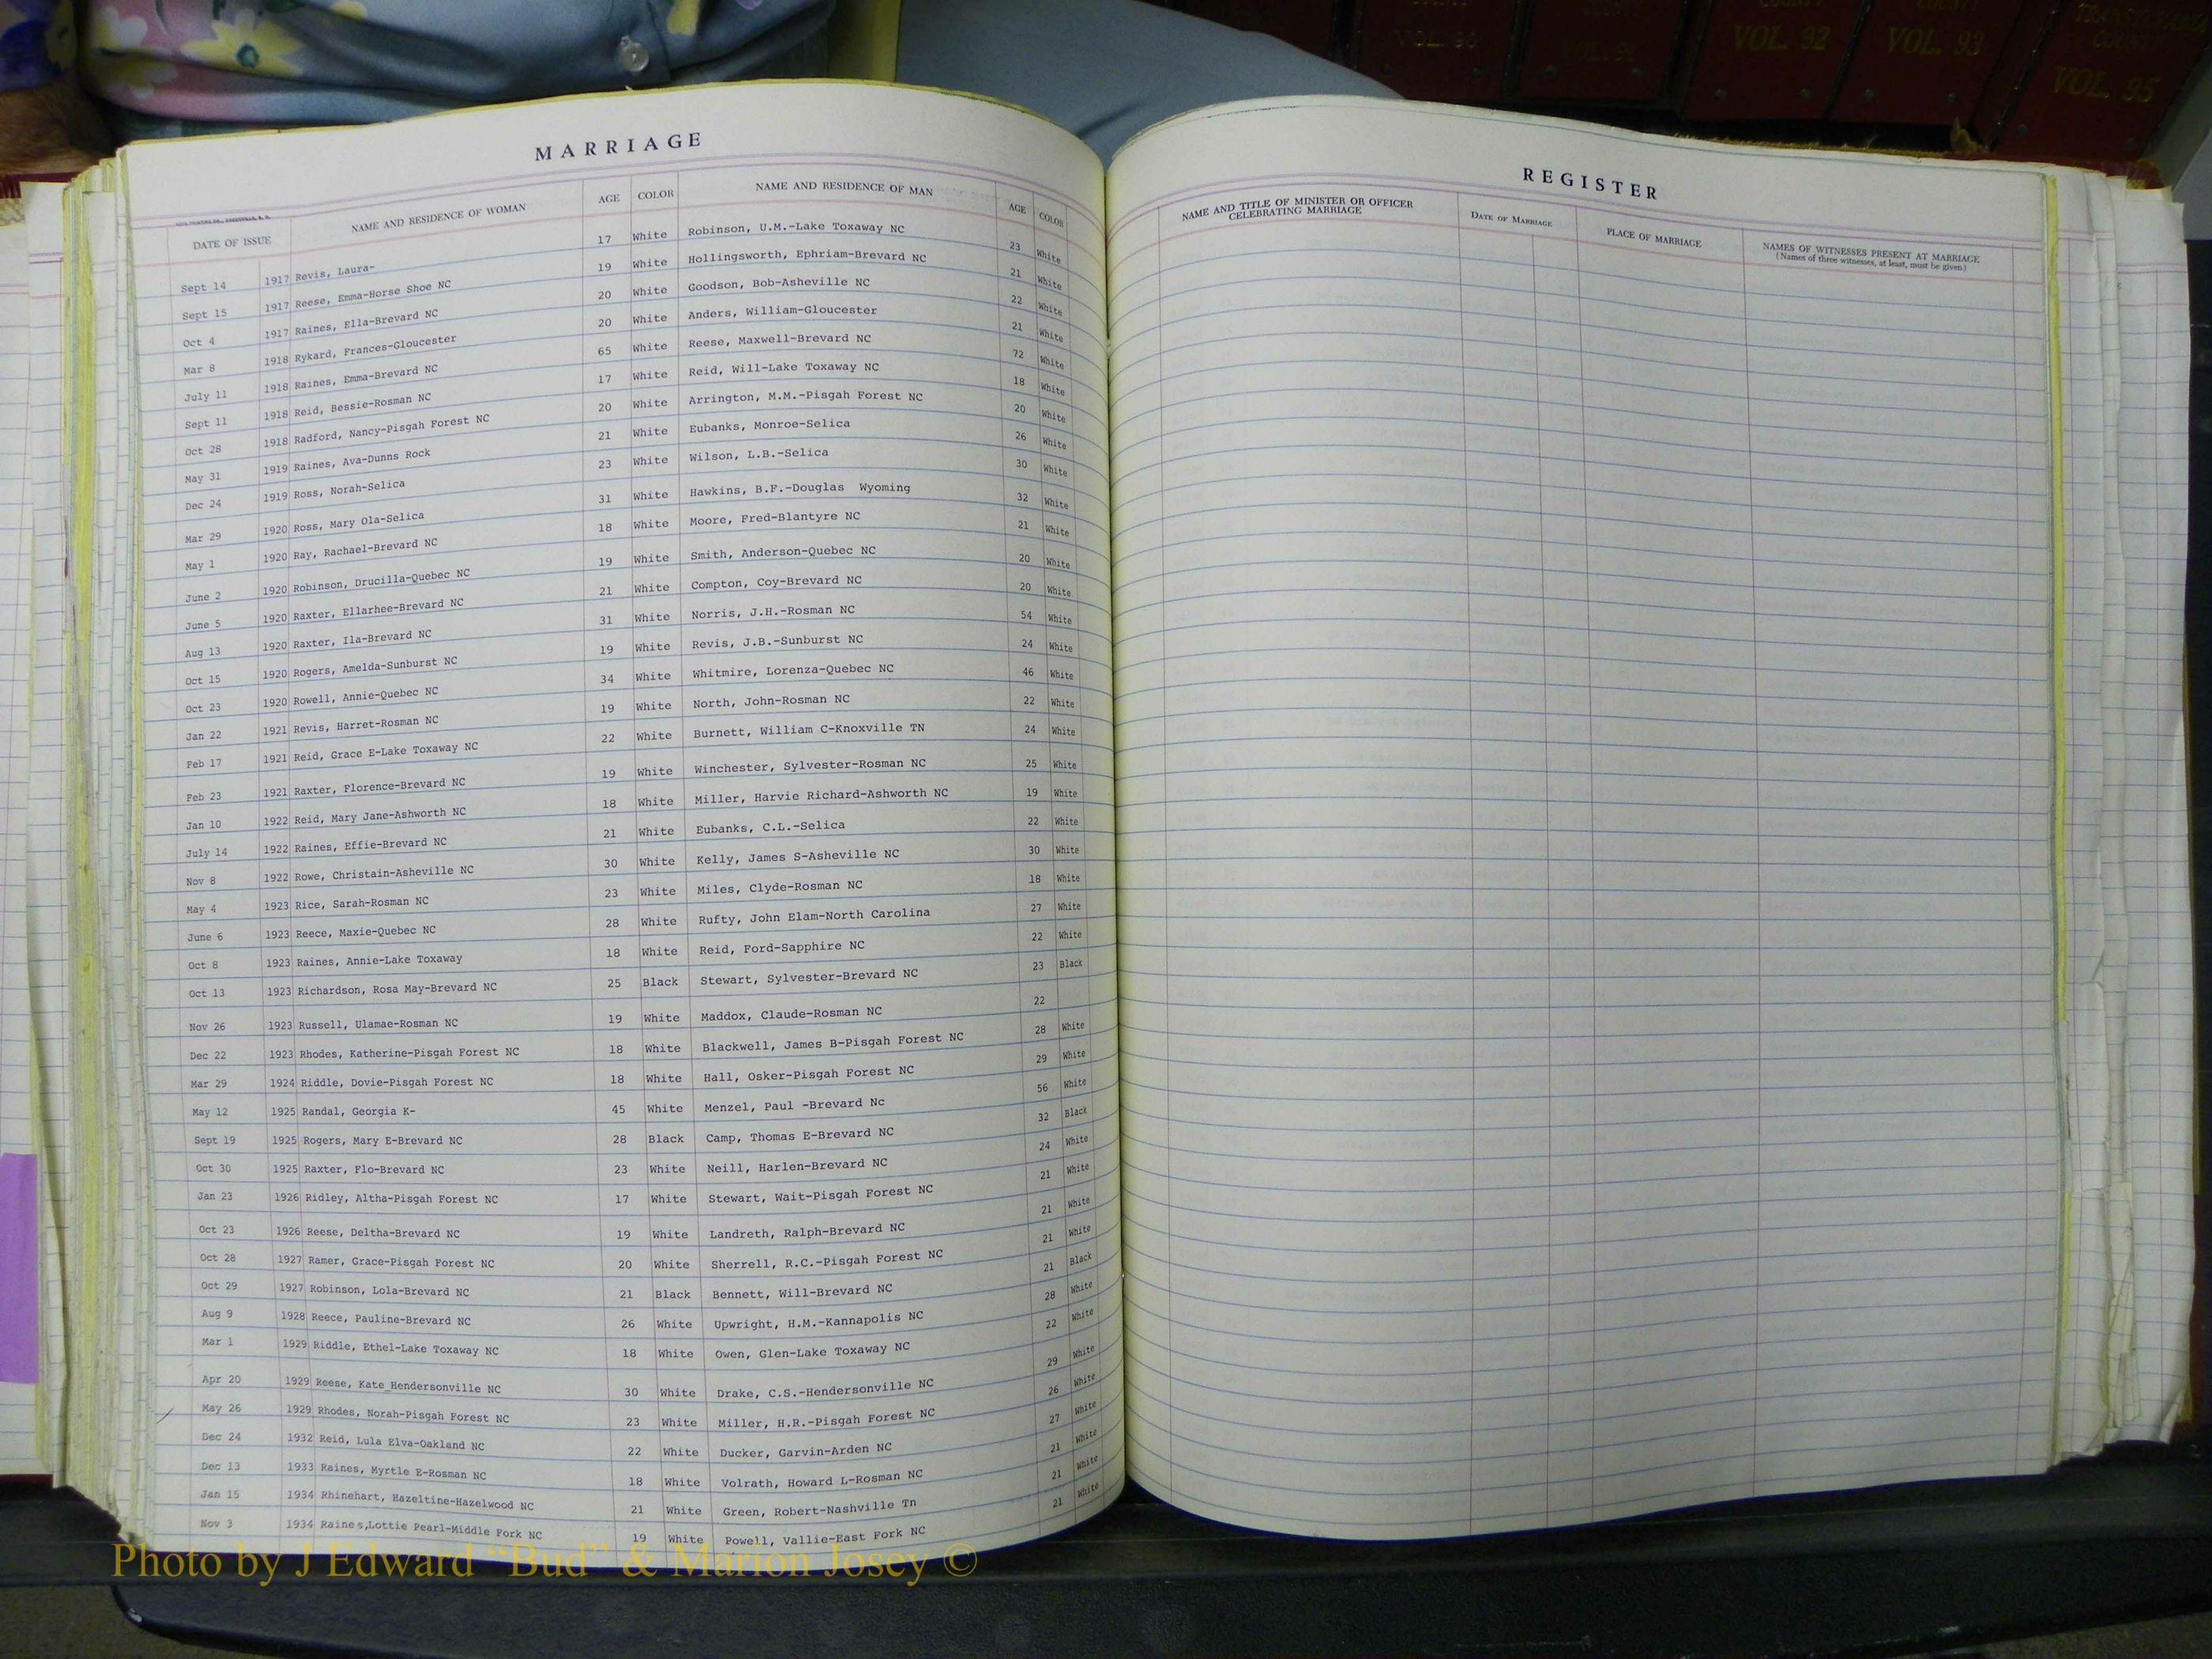 COUNTY
VOL. 90
COUNTY
VOL. 91
COUNTY
VOL. 92
COUNTY
VOL. 93
TRANSYLVANIA
COUNTY
VOL. 95
MARRIAGE
DATE OF ISSUE NAME AND RESIDENCE OF WOMAN AGE COLOR NAME AND RESIDENCE OF MAN AGE COLOR
Sept 14 1917 Revis, Laura- 17 White Robinson, U.M.-Lake Toxaway NC 23 White
Sept 15 1917 Reese, Emma-Horse Shoe NC 19 White Hollingsworth, Ephriam-Brevard NC 21 White
Oct 4 1917 Raines, Ella-Brevard NC 20 White Goodson, Bob-Asheville NC 22 White
Mar 8 1918 Rykard, Frances-Gloucester 20 White Anders, William-Gloucester 21 White
July 11 1918 Raines, Emma-Brevard NC 65 White Reese, Maxwell-Brevard NC 72 White
Sept 11 1918 Reid, Bessie-Rosman NC 17 White Reid, Will-Lake Toxaway NC 18 White
Oct 28 1918 Radford, Nancy-Pisgah Forest NC 20 White Arrington, M.M.-Pisgah Forest NC 20 White
May 31 1919 Raines, Ava-Dunns Rock 21 White Eubanks, Monroe-Selica 26 White
Dec 24 1919 Ross, Norah-Selica 23 White Wilson, L.B.-Selica 30 White
Mar 29 1920 Ross, Mary Ola-Selica 31 White Hawkins, B.F.-Douglas Wyoming 32 White
May 1 1920 Ray, Rachael-Brevard NC 18 White Moore, Fred-Blantyre NC 21 White
June 2 1920 Robinson, Drucilla-Quebec NC 19 White Smith, Anderson-Quebec NC 20 White
June 5 1920 Raxter, Ellarhee-Brevard NC 21 White Compton, Coy-Brevard NC 20 White
Aug 13 1920 Raxter, Ila-Brevard NC 31 White Norris, J.H.-Rosman NC 54 White
Oct 15 1920 Rogers, Amelda-Sunburst NC 19 White Revis, J.B.-Sunburst NC 24 White
Oct 23 1920 Rowell, Annie-Quebec NC 34 White Whitmire, Lorenza-Quebec NC 46 White
Jan 22 1921 Revis, Harret-Rosman NC 19 White North, John-Rosman NC 22 White
Feb 17 1921 Reid, Grace E-Lake Toxaway NC 22 White Burnett, William C-Knoxville TN 24 White
Feb 23 1921 Raxter, Florence-Brevard NC 19 White Winchester, Sylvester-Rosman NC 25 White
Jan 10 1922 Reid, Mary Jane-Ashworth NC 18 White Miller, Harvie Richard-Ashworth NC 19 White
July 14 1922 Raines, Effie-Brevard NC 21 White Eubanks, C.L.-Selica 22 White
Nov 8 1922 Rowe, Christain-Asheville NC 30 White Kelly, James S-Asheville NC 30 White
May 4 1923 Rice, Sarah-Rosman NC 23 White Miles, Clyde-Rosman NC 18 White
June 6 1923 Reece, Maxie-Quebec NC 28 White Rufty, John Elam-North Carolina 27 White
Oct 8 1923 Raines, Annie-Lake Toxaway 18 White Reid, Ford-Sapphire NC 22 White
Oct 13 1923 Richardson, Rosa May-Brevard NC 25 Black Stewart, Sylvester-Brevard NC 23 Black
Nov 26 1923 Russell, Ulamae-Rosman NC 19 White Maddox, Claude-Rosman NC 22
Dec 22 1923 Rhodes, Katherine-Pisgah Forest NC 18 White Blackwell, James B-Pisgah Forest NC 28 White
Mar 29 1924 Riddle, Dovie-Pisgah Forest NC 18 White Hall, Osker-Pisgah Forest NC 29 White
May 12 1925 Randal, Georgia K- 45 White Menzel, Paul -Brevard Nc 56 White
Sept 19 1925 Rogers, Mary E-Brevard NC 28 Black Camp, Thomas E-Brevard NC 32 Black
Oct 30 1925 Raxter, Flo-Brevard NC 23 White Neill, Harlen-Brevard NC 24 White
Jan 23 1926 Ridley, Altha-Pisgah Forest NC 17 White Stewart, Wait-Pisgah Forest NC 21 White
Oct 23 1926 Reese, Deltha-Brevard NC 19 White Landreth, Ralph-Brevard NC 21 White
Oct 28 1927 Ramer, Grace-Pisgah Forest NC 20 White Sherrell, R.C.-Pisgah Forest NC 21 White
Oct 29 1927 Robinson, Lola-Brevard NC 21 Black Bennett, Will-Brevard NC 21 Black
Aug 9 1928 Reece, Pauline-Brevard NC 26 White Upwright, H.M.-Kannapolis NC 28 White
Mar 1 1929 Riddle, Ethel-Lake Toxaway NC 18 White Owen, Glen-Lake Toxaway NC 22 White
Apr 20 1929 Reese, Kate_Hendersonville NC 30 White Drake, C.S.-Hendersonville NC 29 White
May 26 1929 Rhodes, Norah-Pisgah Forest NC 23 White Miller, H.R.-Pisgah Forest NC 26 White
Dec 24 1932 Reid, Lula Elva-Oakland NC 22 White Ducker, Garvin-Arden NC 27 White
Dec 13 1933 Raines, Myrtle E-Rosman NC 18 White Volrath, Howard L-Rosman NC 21 White
Jan 15 1934 Rhinehart, Hazeltine-Hazelwood NC 21 White Green, Robert-Nashville Tn 21 White
Nov 3 1934 Raines,Lottie Pearl-Middle Fork NC 19 White Powell, Vallie-East Fork NC 21 White
REGISTER
NAME AND TITLE OF MINISTER OR OFFICER CELEBRATING MARRIAGE DATE OF MARRIAGE PLACE OF MARRIAGE NAMES OF WITNESSES PRESENT AT MARRIAGE
(Names of three witnesses, at least, must be given)
Photo by J Edward “Bud” & Marion Josey ©